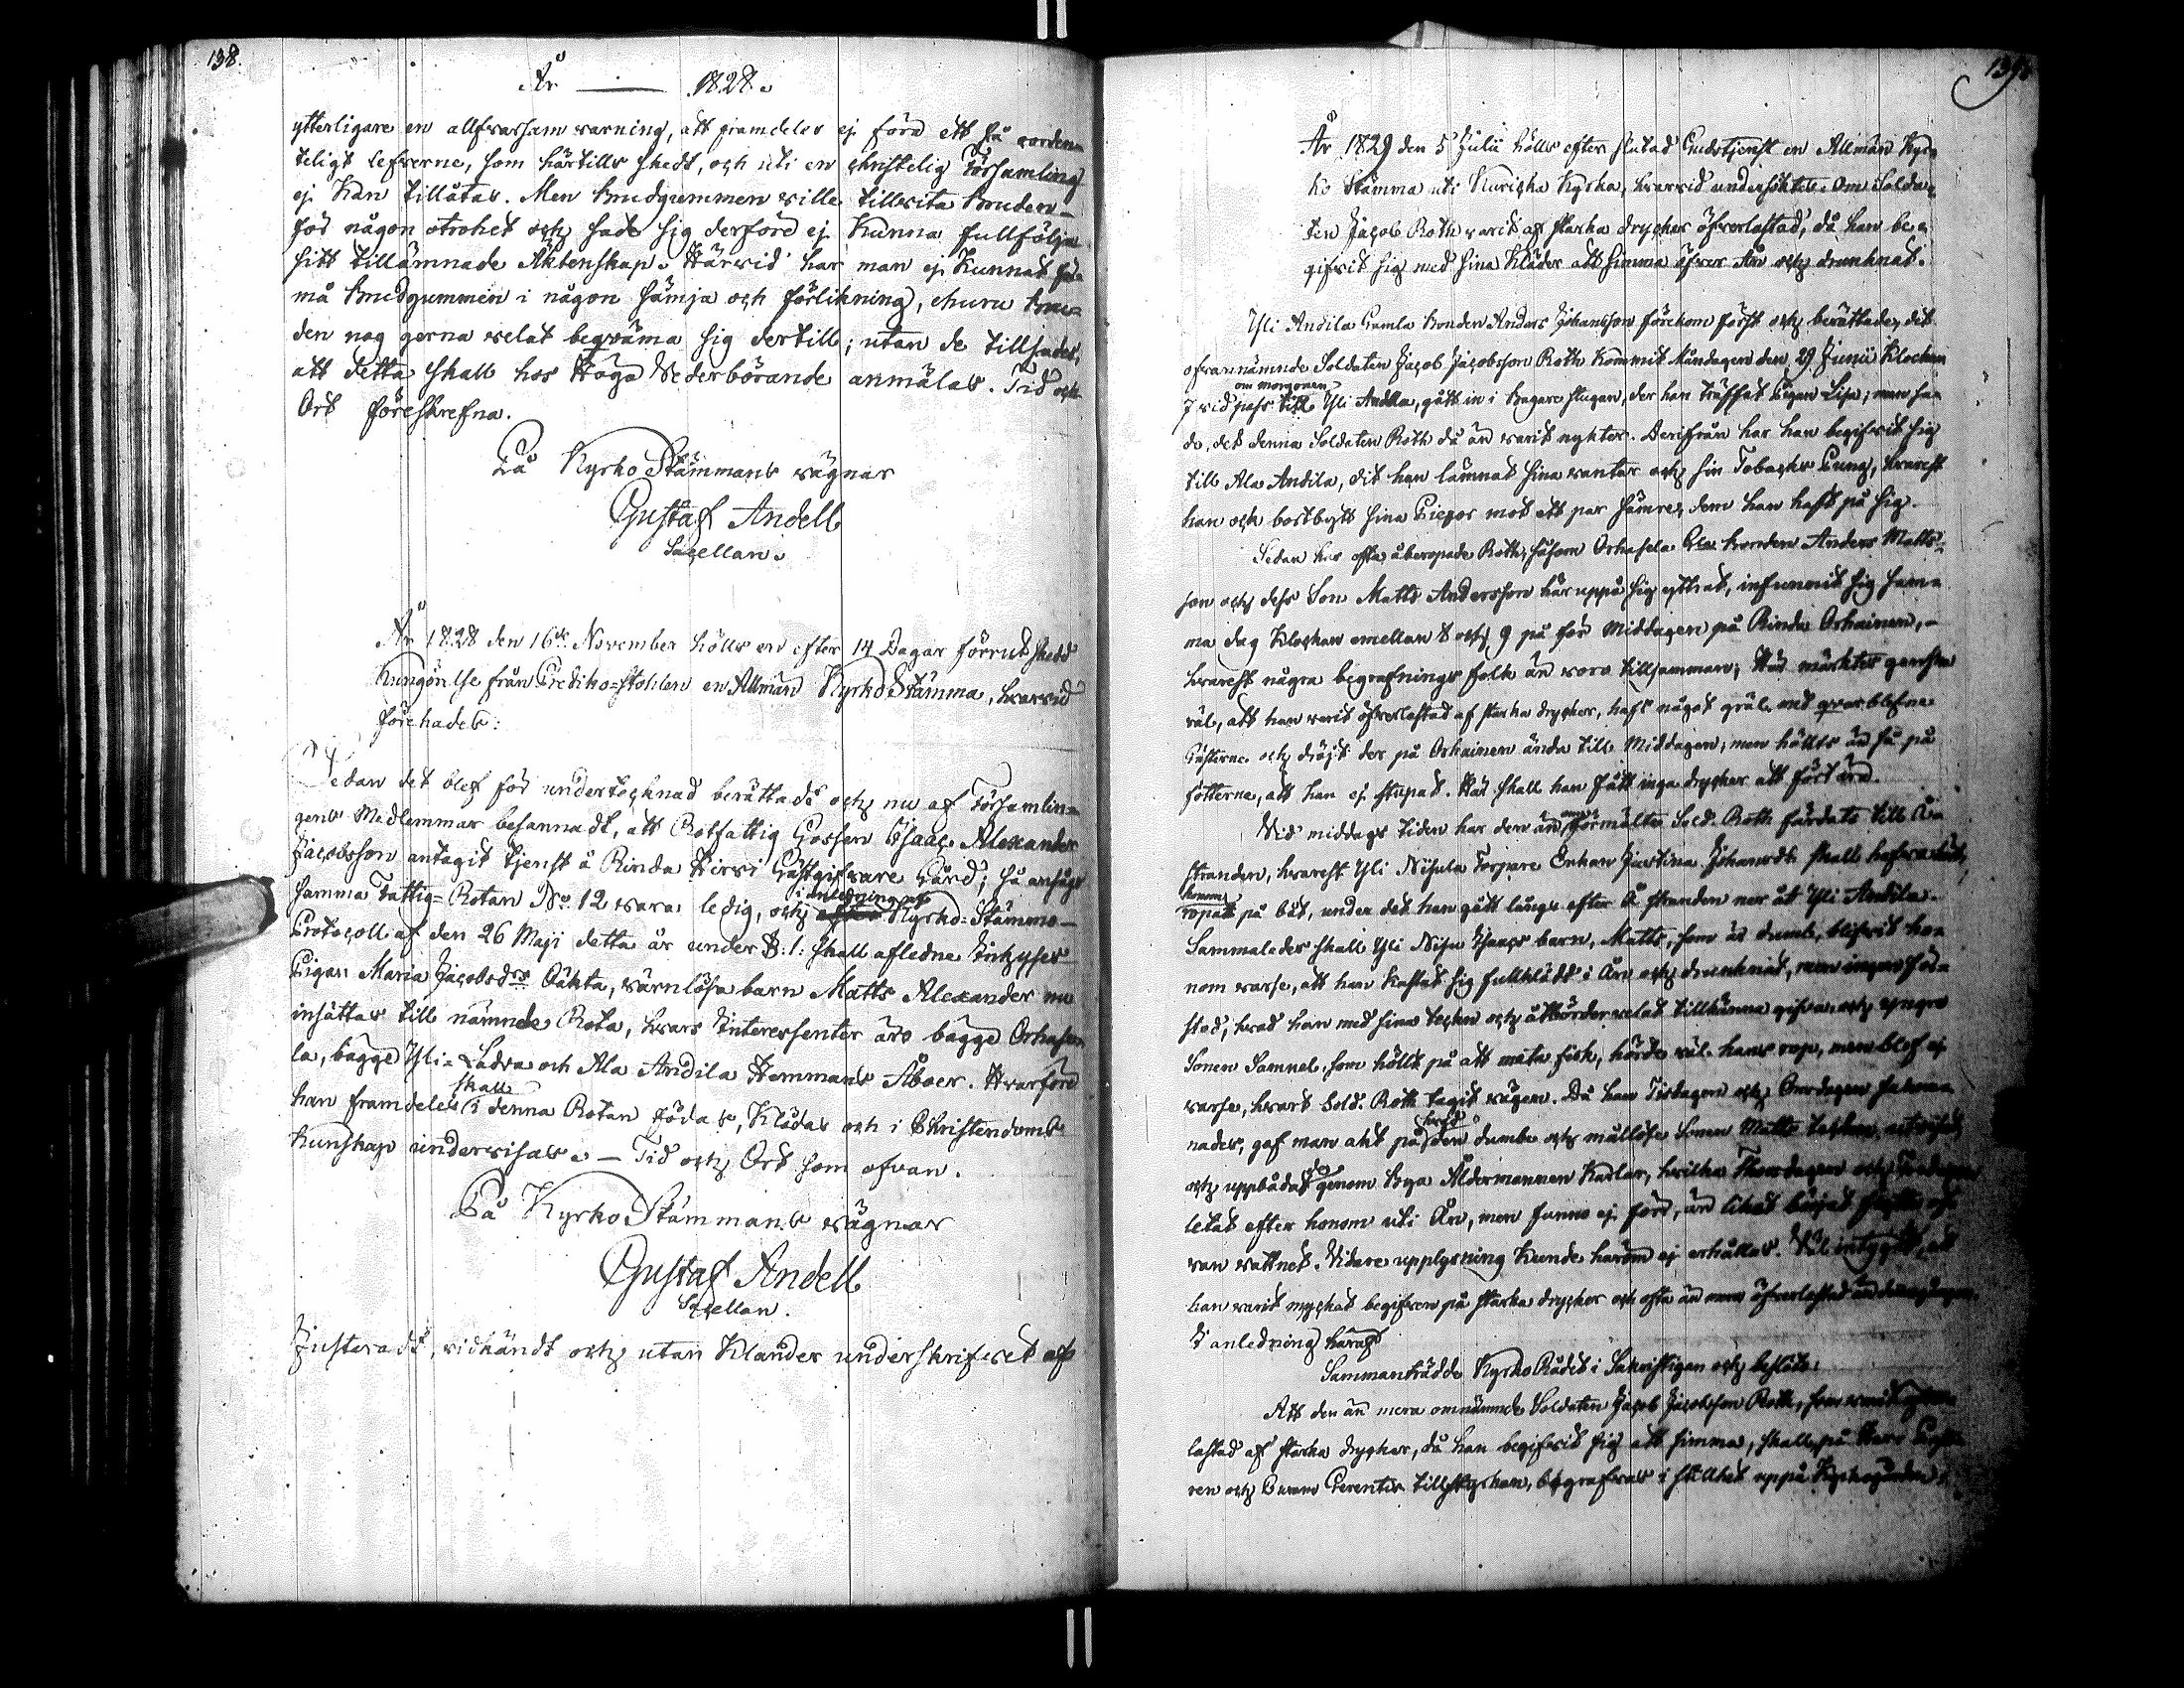 138.
År ——— 1828.
ytterligare en allfvarsam varning, att framdeles ej föra ett så oorden-
teligt lefverne, som härtills skedt, och uti en christelig Församling
ej kan tillåtas. Men brudgummen ville tillvita bruden
för någon otrohet och sade sig derföre ej kunna fullfölja
sitt tillämnade Äktenskap. Härvid har man ej kunnat för-
må brudgummen i någon sämja och förlikning, ehuru bru-
den nog gerna velat beqväma sig dertill; utan de tillsades,
att detta skall hos Höga Vederbörande anmälas. Tid och
Ort föreskrefna.
På Kyrko Stämmans vägnar
Gustaf Andell
Sacellan.
År 1828 den 16de November hölls en efter 14 Dagar förrut skedd
Kungörelse från Prediko-stohlen en Allmän Kyrko Stämma, hvarvid
förehades:
Sedan det blef för undertecknad berättadt och nu af Församlin-
gens Medlemmar besannadt, att Rotfattig Gossen Isaac Alexander
Jacobsson antagit tjenst å Rinda Hirvi Gästgifvare Gård; så ansågs
samma Fattig-Rotan No 12 vara ledig, och
i anledning af
Kyrko-Stämmo-
Protocoll af den 26 Maji detta år under §. 1. skall afledne Inhyses
Pigan Maria Jacobsdrs Oäkta, värnlösa barn Matts Alexander nu
insättas till nämnde Rota, hvars Interessenter äro bägge Orhase-
la, bägge Yli-Ladva och Ala Andila Hemmans Åboer. Hvarföre
skall
han framdeles i denna Rotan födas, klädas och i Christendoms
kunskap undervisas. — Tid och Ort som ofvan.
På Kyrko Stämmans vägnar
Gustaf Andell
Sacellan.
Justeradt, vidkändt och utan klander underskrifvet af
139.
År 1829 den 5 Julii hölls efter slutad Gudstjenst en Allmän Kyr-
ko Stämma uti Kuricka Kyrka, hvarvid undersöktes: Om Solda-
ten Jacob Roth varit af starka drycker öfverlastad, då han be-
gifvit sig med sina kläder att simma öfver Ån och drunknat.
Yli Andila Gamla bonden Anders Johansson förekom först och berättade, det
ofvannämnde Soldaten Jacob Jacobsson Roth kommit Måndagen den 29 Junii klockan
om morgonen
7 vid pass till Yli Andila, gått in i bagare stugan, der han träffat Pigan Lisa; men sa-
de, det denna Soldaten Roth då än varit nykter. Derifrån har han begifvit sig
till Ala Andila, dit han lämnat sina vantar och sin Tobacks Pung, hvarest
han och bortbytt sina Piexor mot ett par sämre, dem han haft på sig.
Sedan har ofta åberopade Roth, såsom Orhasela bonden Anders Matts-
son och dess Son Matts Andersson häruppå sig yttrat, infunnit sig sam-
ma dag klockan emellan 8 och 9 på för middagen på Rinda Orhainen,
hvarest några begrafnings folk än voro tillsamman; Här märktes genast
väl, att han varit öfverlastad af starka drycker, haft något gräl med qvarblefne
Gästerne och dröjt der på Orhainen ända till Middagen, men hållits än så på
fötterne, att han ej stupat. Här skall han fått inga drycker att förtära.
Vid middags tiden har den än förmälte Sold. Roth färdats till Å-
stranden, hvarest Yli Nisula Torpare Enkan Justina Johansdr skall hafva
honom
ropat på båt, under det han gått längs efter Å stranden ner åt Yli Andila.
Sammaledes skall Yli Nisu Isaacs barn, Matts, som är dumb, blifvit ho-
nom varse, att han kastat sig fullklädd i Ån och drunknat, men ingen för-
stod, hvad han med sina tecken och åtbörder velat tillkänna gifva, och yngre
Sonen Samuel, som hållt på att meta fisk, hörde väl hans rop, men blef ej
varse, hvart Sold. Roth tagit vägen. Då han Tisdagen och Onsdagen sakna-
hvad
nades, gaf man akt på den dumbe och mållöse Sonen Matts tecken,
och uppbådat genom bya Åldermannen Karlar, hvilka Thorsdagen och Fredagen
letat efter honom uti Ån, men funno ej förr, än liket börjat flyta of-
van vattnet. Vidare upplysning kunde härom ej erhållas. Väl intygtes, att
han varit mycket begifven på starka drycker och ofta än mera öfverlastad än denna dagen.
I anledning häraf
Sammanträdde Kyrko Rådet i Sakristigan och beslöts:
Att den än mera omnämnde Soldaten Jacob Jacobsson Roth, som varit öfver-
lastad af starka drycker, då han begifvit sig att simma, skall på Herr Prosten
ren och Curam Gerentis tillstyrkan, begrafvas i stillhet uppå Kyrkogården.